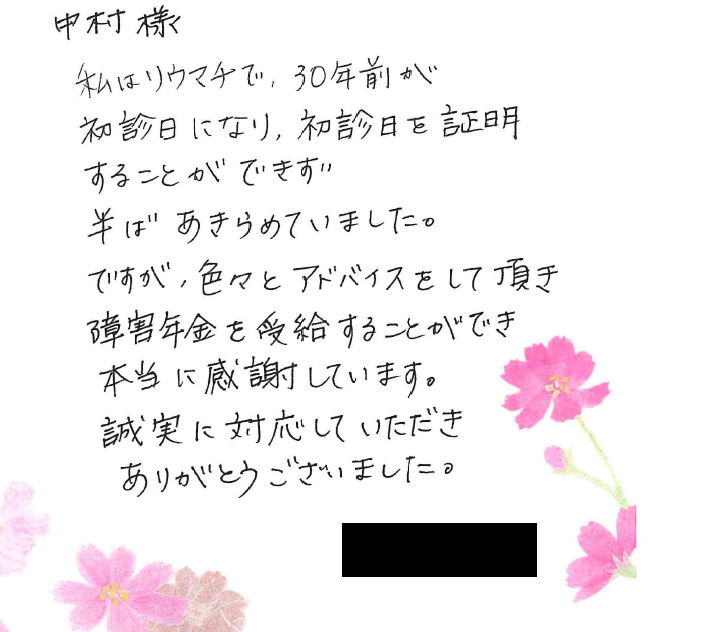 中村様
私はリウマチで、30年前が
初診日になり、初診日を証明
することができず
半ばあきらめていました。
ですが、色々とアドバイスをして頂き
障害年金を受給することができ
本当に感謝しています。
誠実に対応していただき
ありがとうございました。